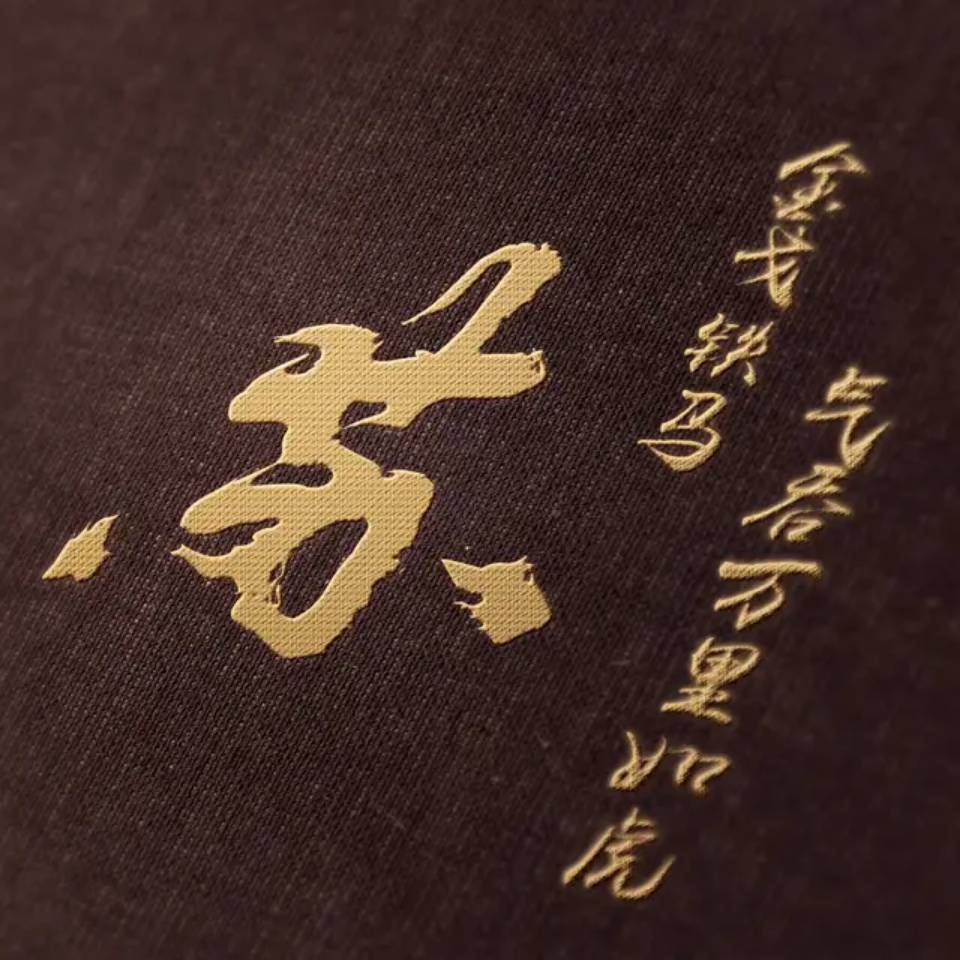 苏
金戈铁马
气吞万里如虎